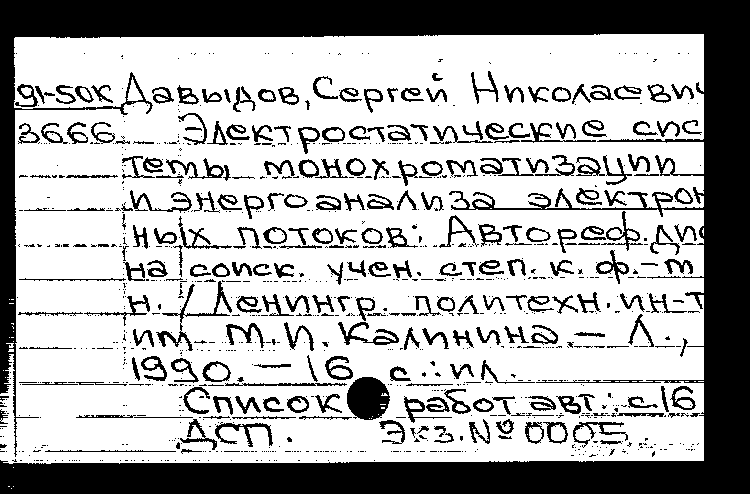 91-50К Давыдов, Сергей Николаевич
3666 Электростатические сис
темы монохроматизации
и энергоанализа электрон
ных потоков: Автореф. дис
на соиск. учен. степ. к. ф.-м
н. / Ленингр. политехн. ин-т
им М.И. Калинина. – Л.,
1990. – 16 с.: ил.
Список работ авт.: с.16
ДСП. Экз. № 0005